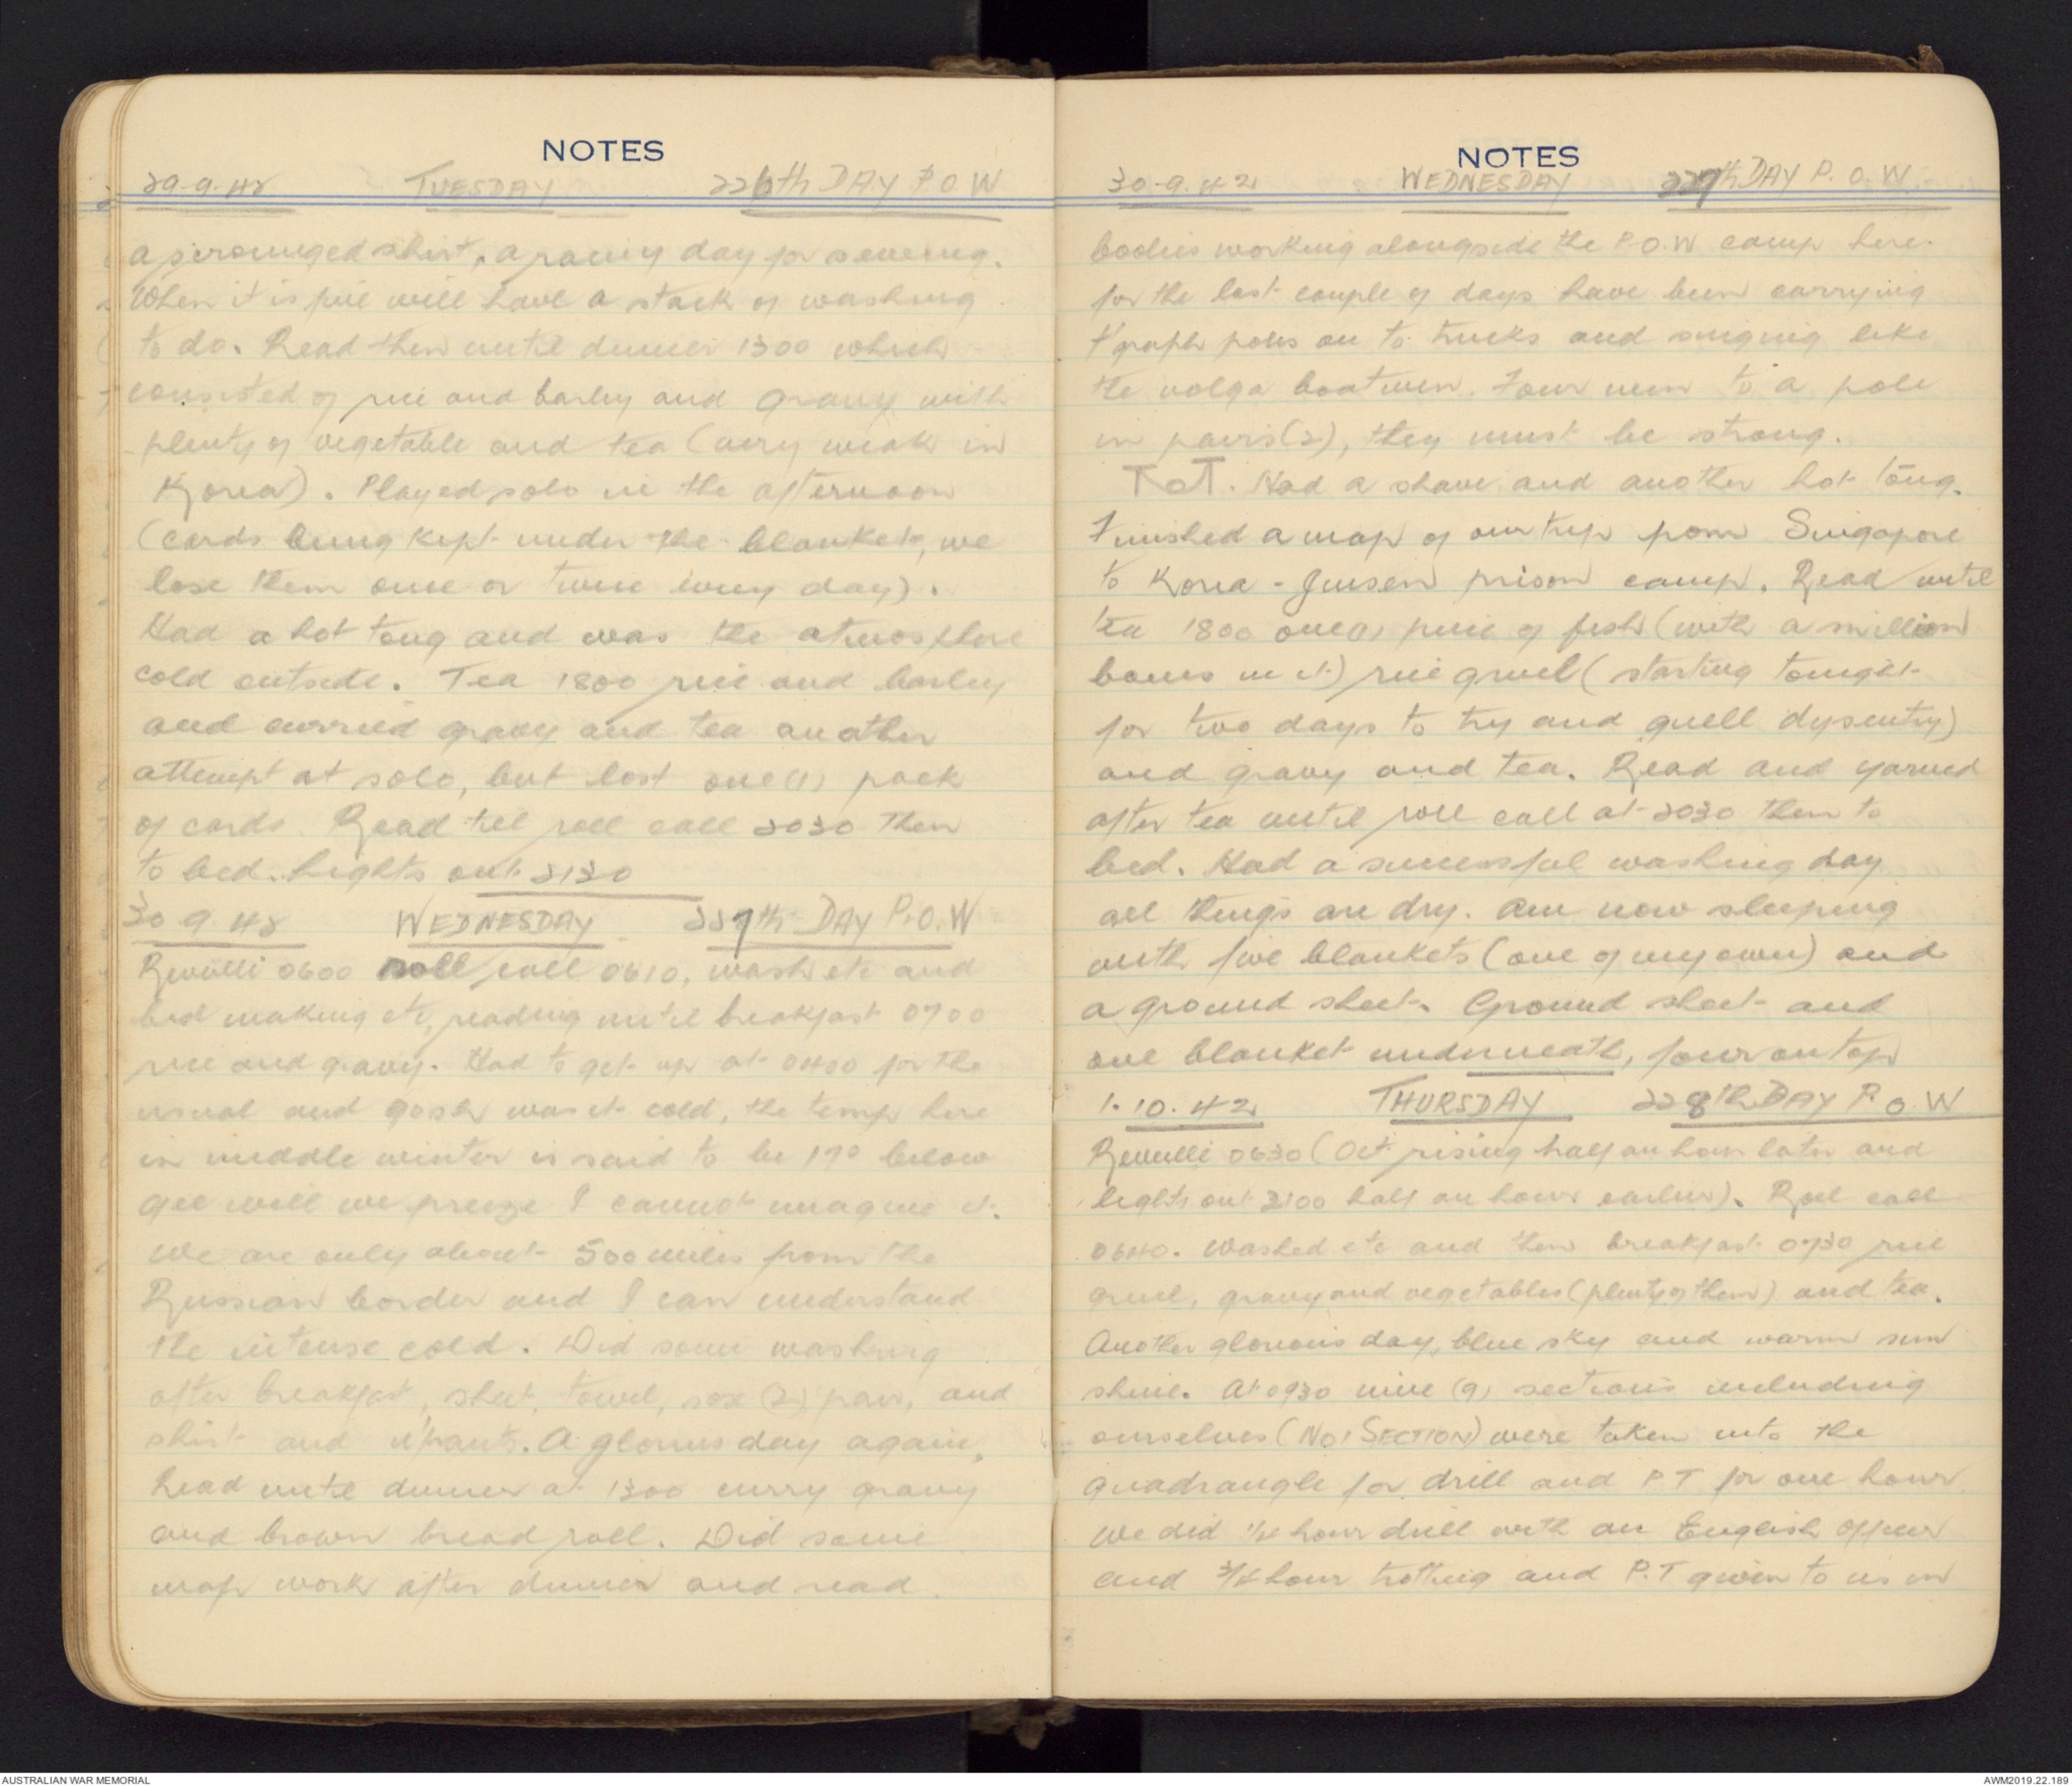 NOTES
29-9-42 TUESDAY 226th DAY P.O.W
a scrounged shirt, a rainy day for sewing.
When it is fine will have a stack of washing
to do. Read then until dinner 1300 which
consisted of rice and barley and gravy with
plenty of vegetable and tea (very weak in
Korea). Played solo in the afternoon
(cards being kept under the blanket, we
lose them once or twice every day).
Had a hot tong and was the atmosphere
cold outside. Tea 1800 rice and barley
and curried gravy and tea another
attempt at solo, but lost one (1) pack
of cards. Read till roll call 2030 then
to bed. Lights out 2130
30 9 42 WEDNESDAY 227th DAY P.O.W
Revulli 0600 roll call 0610, wash etc and
bed making etc, reading until breakfast 0700
rice and gravy. Had to get up at 0400 for the
usual and gosh was it cold, the temp here
in middle winter is said to be 17° below
gee will we freeze I cannot imagine it.
We are only about 500 miles from the
Russian border and I can understand
the intense cold. Did some washing
after breakfast, sheet, towel, sox (2) pair, and
shirt and u'pants. A glorius day again,
Read until dinner at 1300 curry gravy
and brown bread roll. Did some
map work after dinner and read.
NOTES
30-9.42 WEDNESDAY 227th DAY P.O.W.
working alongside the P.O.W camp here.
for the last couple of days have been carrying
t'graph poles on to trucks and singing like
the volga boatmen. Four men to a pole
in pairs (2), they must be strong.
TôT. Had a shave and another hot tong.
Finished a map of our trip from Singapore
to Korea - Jinsen prison camp. Read until
tea 1800 one (1) piece of fish (with a million
bones in it) rice gruel (starting tonight
for two days to try and quell dysentry)
and gravy and tea. Read and yarned
after tea until roll call at 2030 then to
bed. Had a sucessful washing day
all things are dry. Am now sleeping
with five blankets (one of my own) and
a ground sheet. Ground sheet and
one blanket underneath, four on top
1.10.42 THURSDAY 228th DAY P.O.W
Revulli 0630 (Oct rising half an hour later and
lights out 2100 half an hour earlier). Roll call
0640. Washed etc and then breakfast 0730 rice
gruel, gravy and vegetables (plenty of them) and tea.
Another glorious day, blue sky and warm sun
shine. At 0930 nine (9) sections including
ourselves (No 1 SECTION) were taken into the
quadrangle for drill and P T for one hour.
We did 1/4 hour drill with an English Officer
and 3/4 hour trotting and P.T given to us in
AUSTRALIAN WAR MEMORIAL
AWM2019.22.189